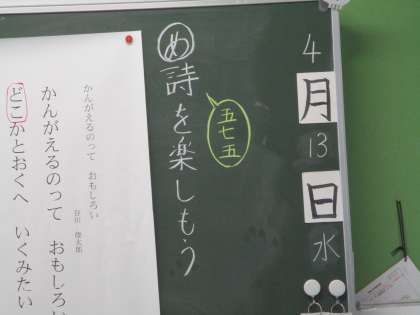 4月13日水
め 詩を楽しもう
五七五
かんがえるのって おもしろい
谷川 俊太郎
かんがえるのって おもしろい
どこかとおくへ いくみたい